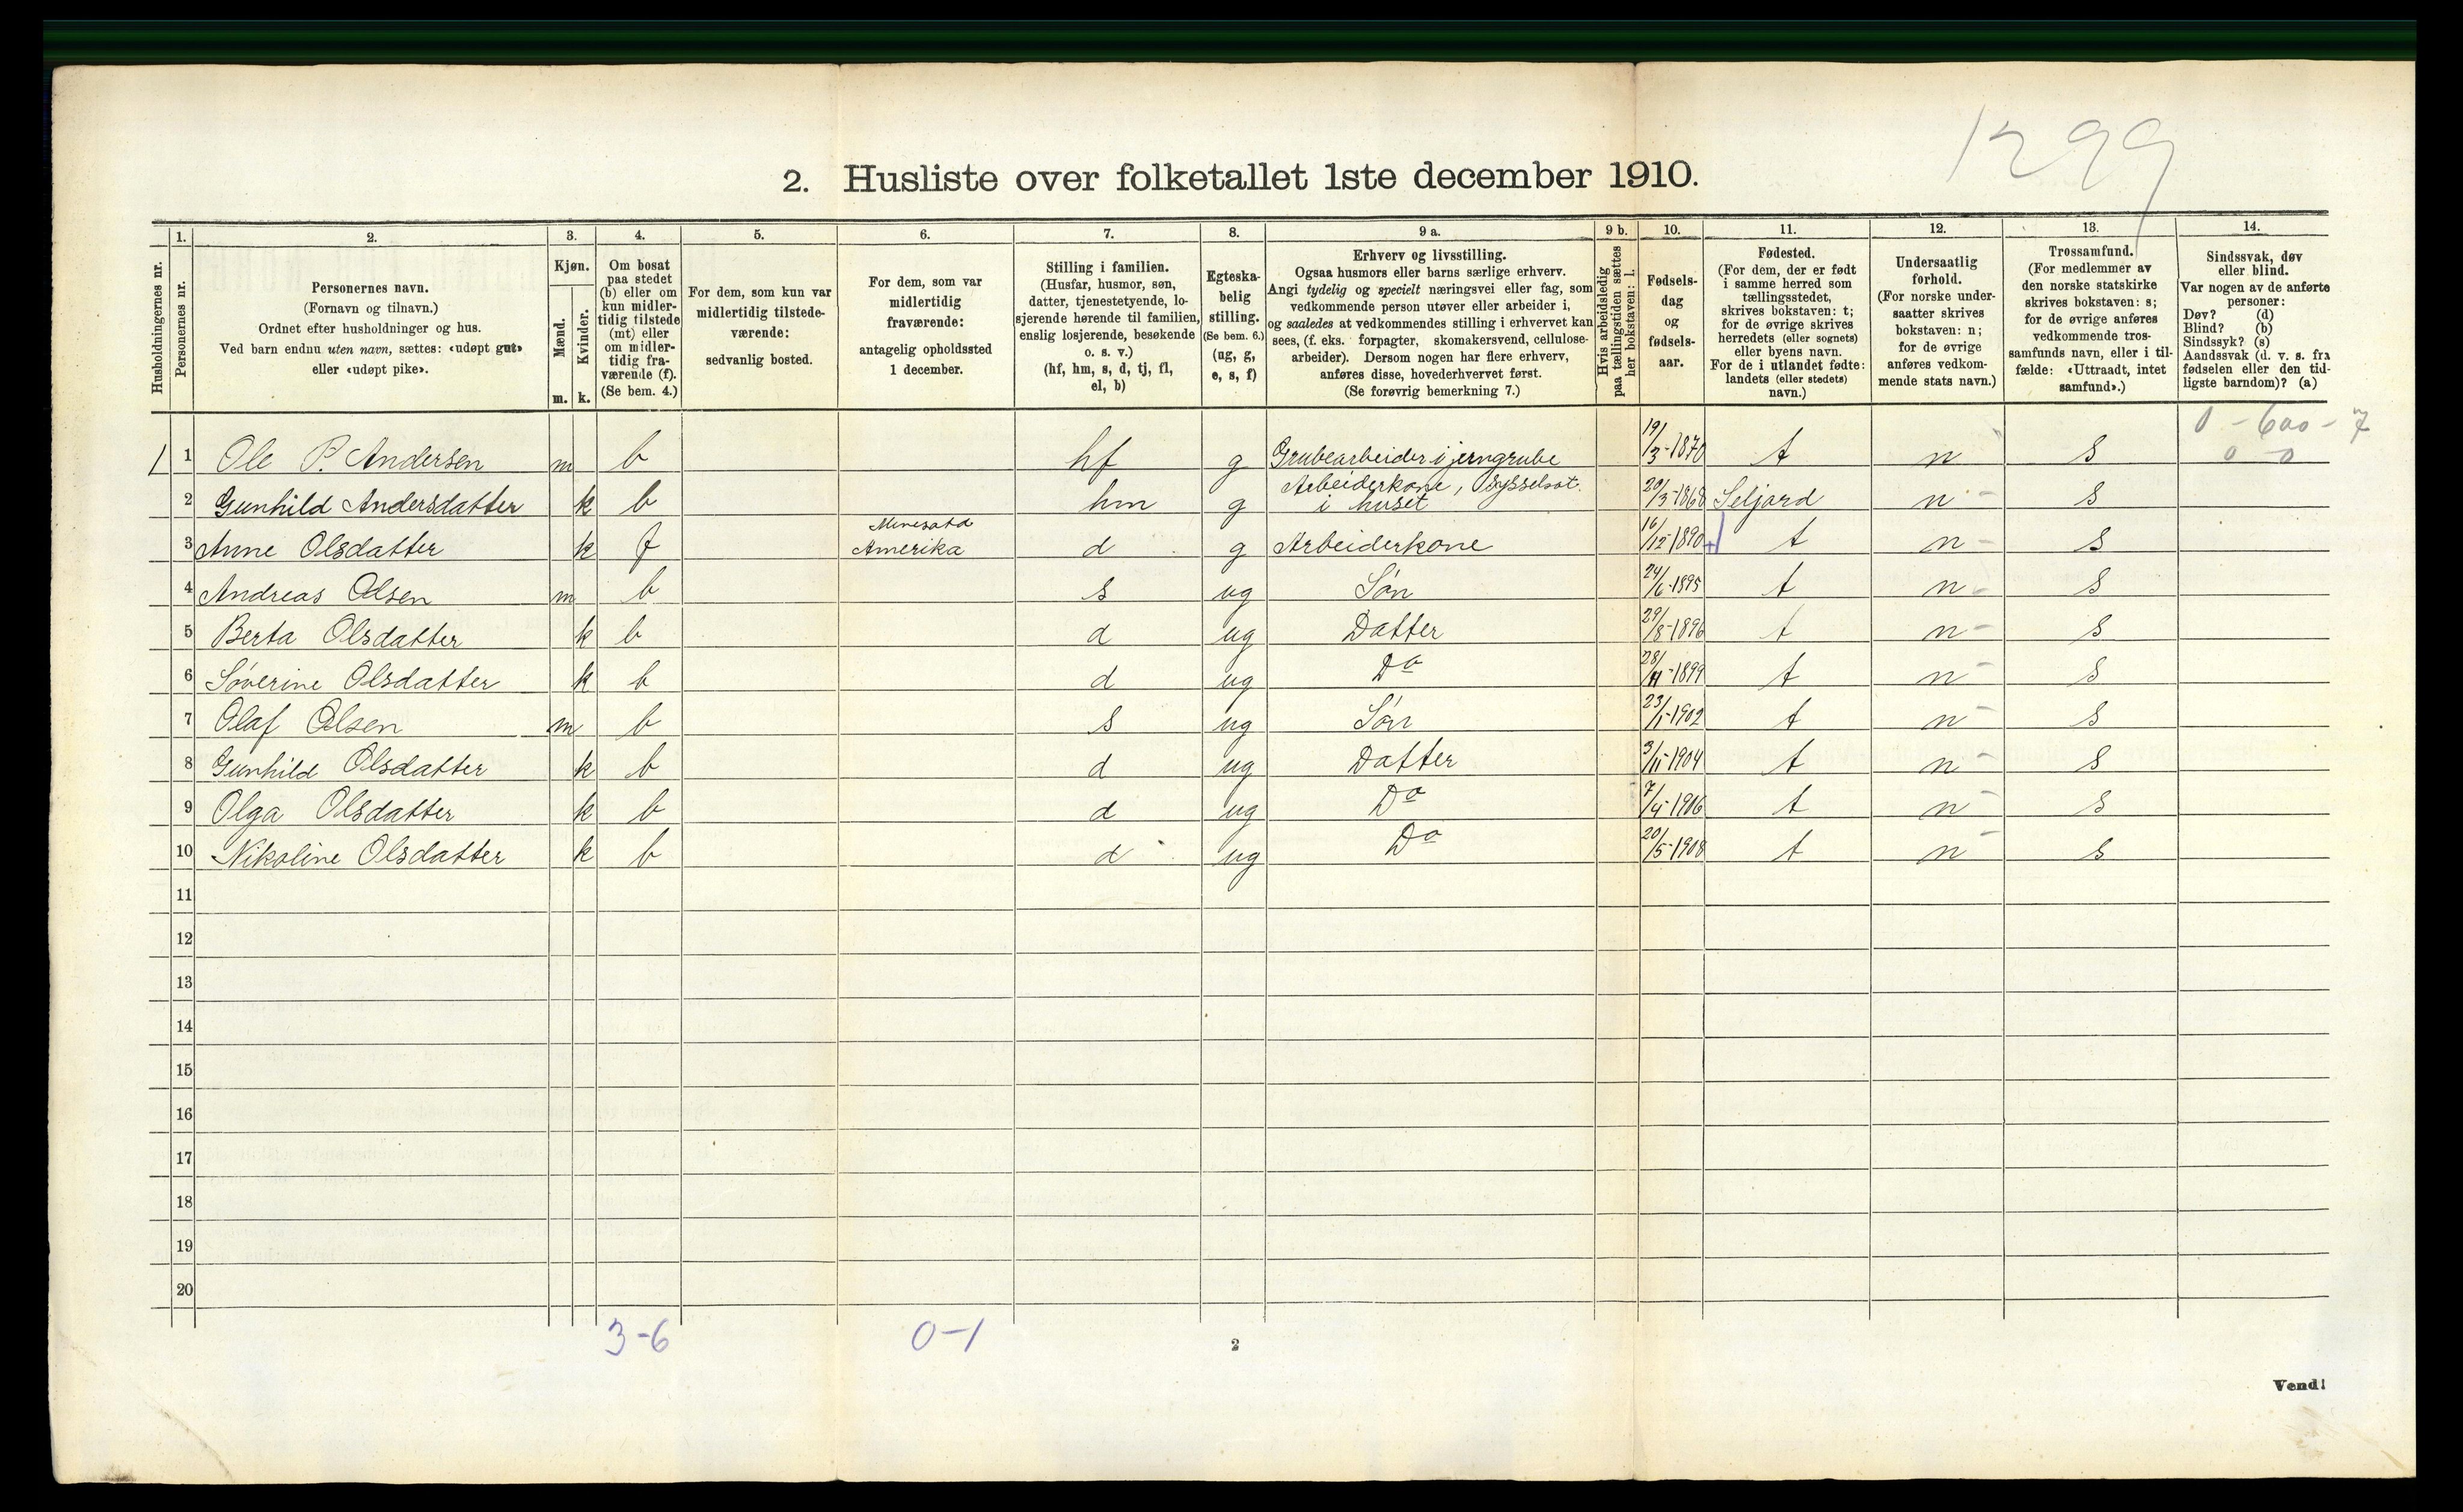 1299
2. Husliste over folketallet 1ste december 1910.
Husholdningernes nr.
1.
Personernes nr.
2.
Personernes navn.
(Fornavn og tilnavn.)
Ordnet efter husholdninger og hus.
Ved barn endnu uten navn, sættes: «udøpt gut»
eller «udøpt pike».
3.
Kjøn.
Mænd.
Kvinder.
m. k.
4.
Om bosat
paa stedet
(b) eller om
kun midler-
tidig tilstede
(mt) eller
om midler-
tidig fra-
værende (f).
(Se bem. 4.)
5.
For dem, som kun var
midlertidig tilstede-
værende:
sedvanlig bosted.
6.
For dem, som var
midlertidig
fraværende:
antagelig opholdssted
1 december.
7.
Stilling i familien.
(Husfar, husmor, søn,
datter, tjenestetyende, lo-
sjerende hørende til familien,
enslig losjerende, besøkende
o. s. v.)
(hf, hm, s, d, tj, fl,
el, b)
8.
Egteska-
belig
stilling.
(Se bem. 6.)
(ug, g,
e, s, f)
9 a.
Erhverv og livsstilling.
Ogsaa husmors eller barns særlige erhverv.
Angi tydelig og specielt næringsvei eller fag, som
vedkommende person utøver eller arbeider i,
og saaledes at vedkommendes stilling i erhvervet kan
sees, (f. eks. forpagter, skomakersvend, cellulose-
arbeider). Dersom nogen har flere erhverv,
anføres disse, hovederhvervet først.
(Se forøvrig bemerkning 7.)
9 b.
Hvis arbeidsledig
paa tællingstiden sættes
her bokstaven: l.
10.
Fødsels-
dag
og
fødsels-
aar.
11.
Fødested.
(For dem, der er født
i samme herred som
tællingsstedet,
skrives bokstaven: t;
for de øvrige skrives
herredets (eller sognets)
eller byens navn.
For de i utlandet fødte:
landets (eller stedets)
navn.)
12.
Undersaatlig
forhold.
(For norske under-
saatter skrives
bokstaven: n;
for de øvrige
anføres vedkom-
mende stats navn.)
13.
Trossamfund.
(For medlemmer av
den norske statskirke
skrives bokstaven: s;
for de øvrige anføres
vedkommende tros-
samfunds navn, eller i til-
fælde: «Uttraadt, intet
samfund».)
14.
Sindssvak, døv
eller blind.
Var nogen av de anførte
personer:
Døv? (d)
Blind? (b)
Sindssyk? (s)
Aandssvak (d. v. s. fra
fødselen eller den tid-
ligste barndom)? (a)
0 - 600 - 7
0 0
1 1 Ole P. Andersen m b hf g Grubearbeider i jerngrube 19/3-1870 t n s
2 Gunhild Andersdatter k b hm g Arbeiderkone, Sysselsat. i huset 20/3-1868 Seljord n s
3 Anne Olsdatter k f Amerika d g Arbeiderkone 16/12-1890 t n s
4 Andreas Olsen m b s ug Søn 24/6-1895 t n s
5 Berta Olsdatter k b d ug Datter 29/8-1896 t n s
6 Søverine Olsdatter k b d ug Do 28/11-1899 t n s
7 Olaf Olsen m b s ug Søn 23/1-1902 t n s
8 Gunhild Olsdatter k b d ug Datter 3/11-1904 t n s
9 Olga Olsdatter k b d ug Do 7/4-1906 t n s
10 Nikoline Olsdatter k b d ug Do 20/5-1908 t n s
11
12
13
14
15
16
17
18
19
20
3-6
0-1
2
Vend!